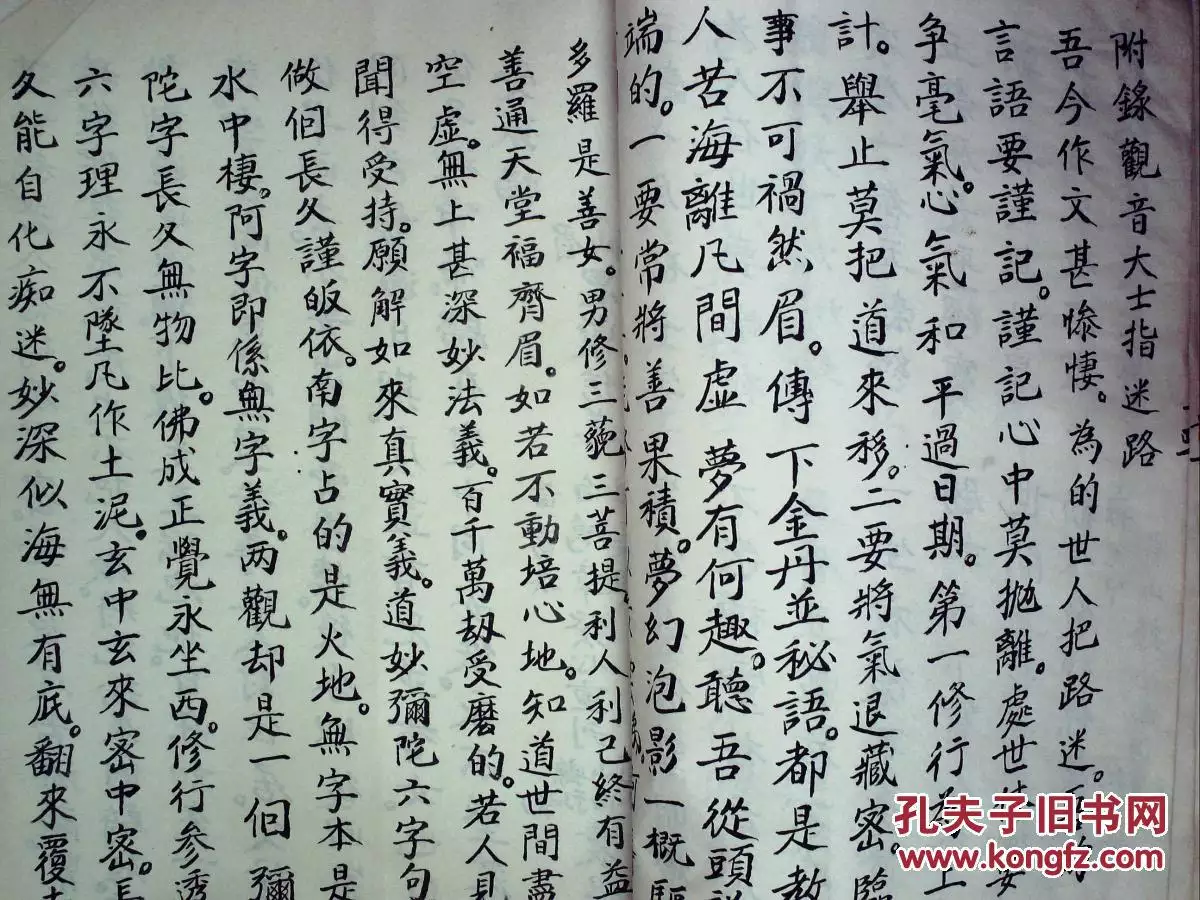 附錄觀音大士指迷路
吾今作文甚惨悽。為的世人把路迷。
言語要謹記。謹記心中莫拋離。處世
争毫氣。心氣和平過日期。第一修行
計。舉止莫把道來移。二要將氣退藏密。臨
事不可禍然眉。傳下金丹並秘語。都是教
人苦海離凡間虛夢有何趣。聽吾從頭説
端的。一要常將善果積。夢幻泡影一概驅
多羅是善女。男修三藐三菩提利人利己終有益
善通天堂福齊眉。如若不動培心地。知道世間盡
空虛。無上甚深妙法義。百千萬劫受磨的。若人見
聞得受持。願解如來真實義。道妙彌陀六字句
做個長久謹皈依。南字占的是火地。無字本是
水中棲。阿字即係無字義。两觀却是一個彌
陀字長久無物比。佛成正覺永坐西。修行參透
六字理永不墜凡作土泥。玄中玄來密中密。
久能自化痴迷。妙深似海無有底。翻來覆
孔夫子旧书网
www.kongfz.com